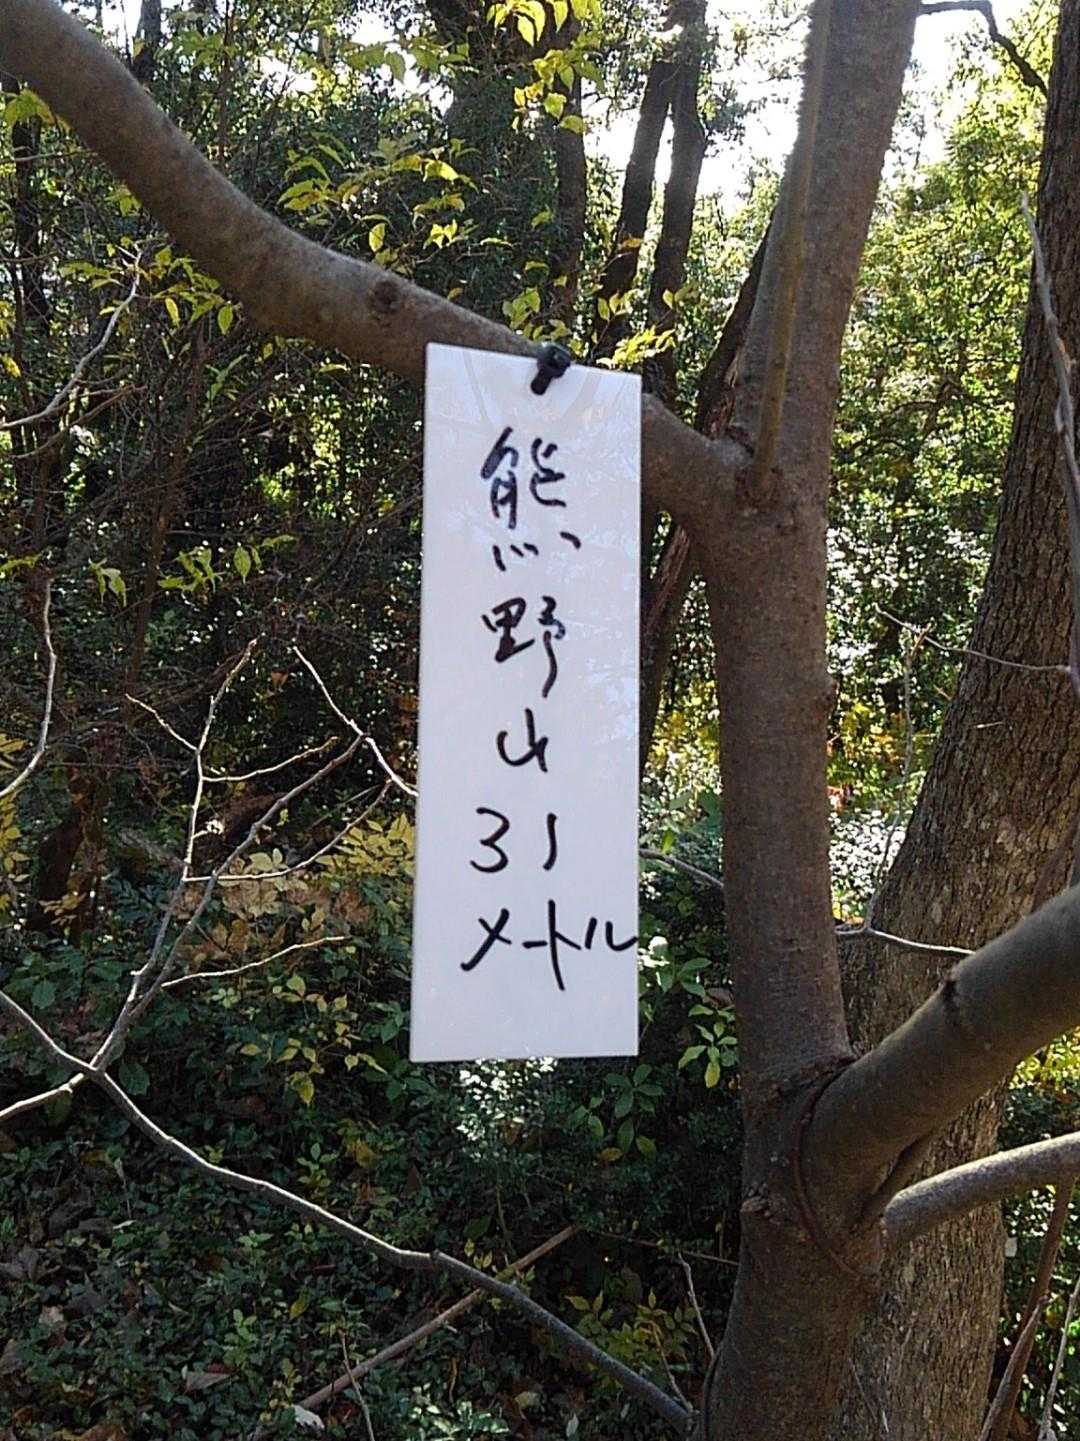 熊
野
山
31
メートル